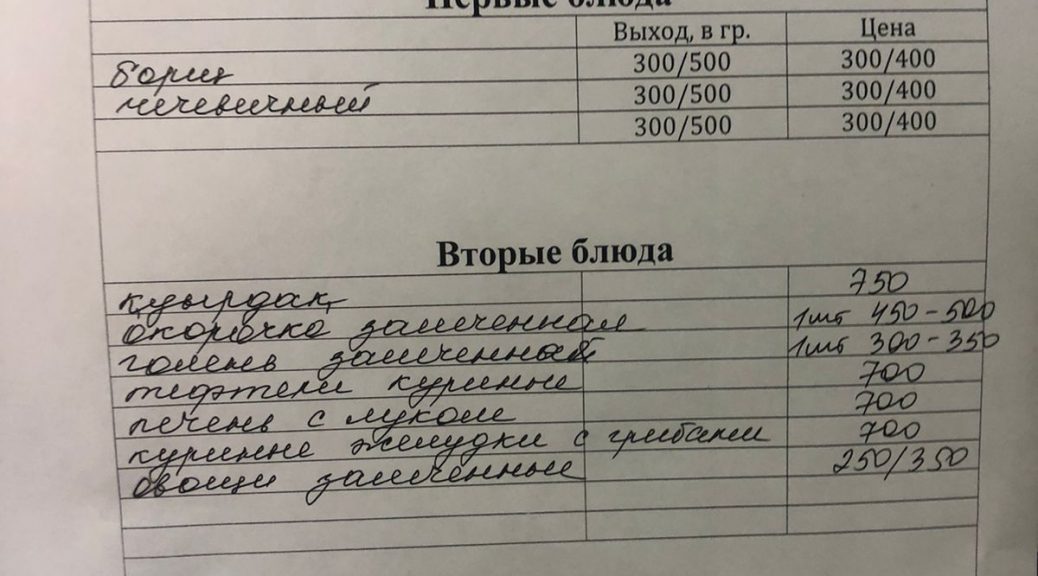 Первые блюда
Выход, в гр. Цена
борщ 300/500 300/400
чечевичный 300/500 300/400
300/500 300/400
Вторые блюда
қуырдақ 750
окорочка запеченная 1шт 450-500
голень запеченный 1шт 300-350
тефтели куриные 700
печень с луком 700
куринне желудки с грибами 700
овощи запеченные 250/350